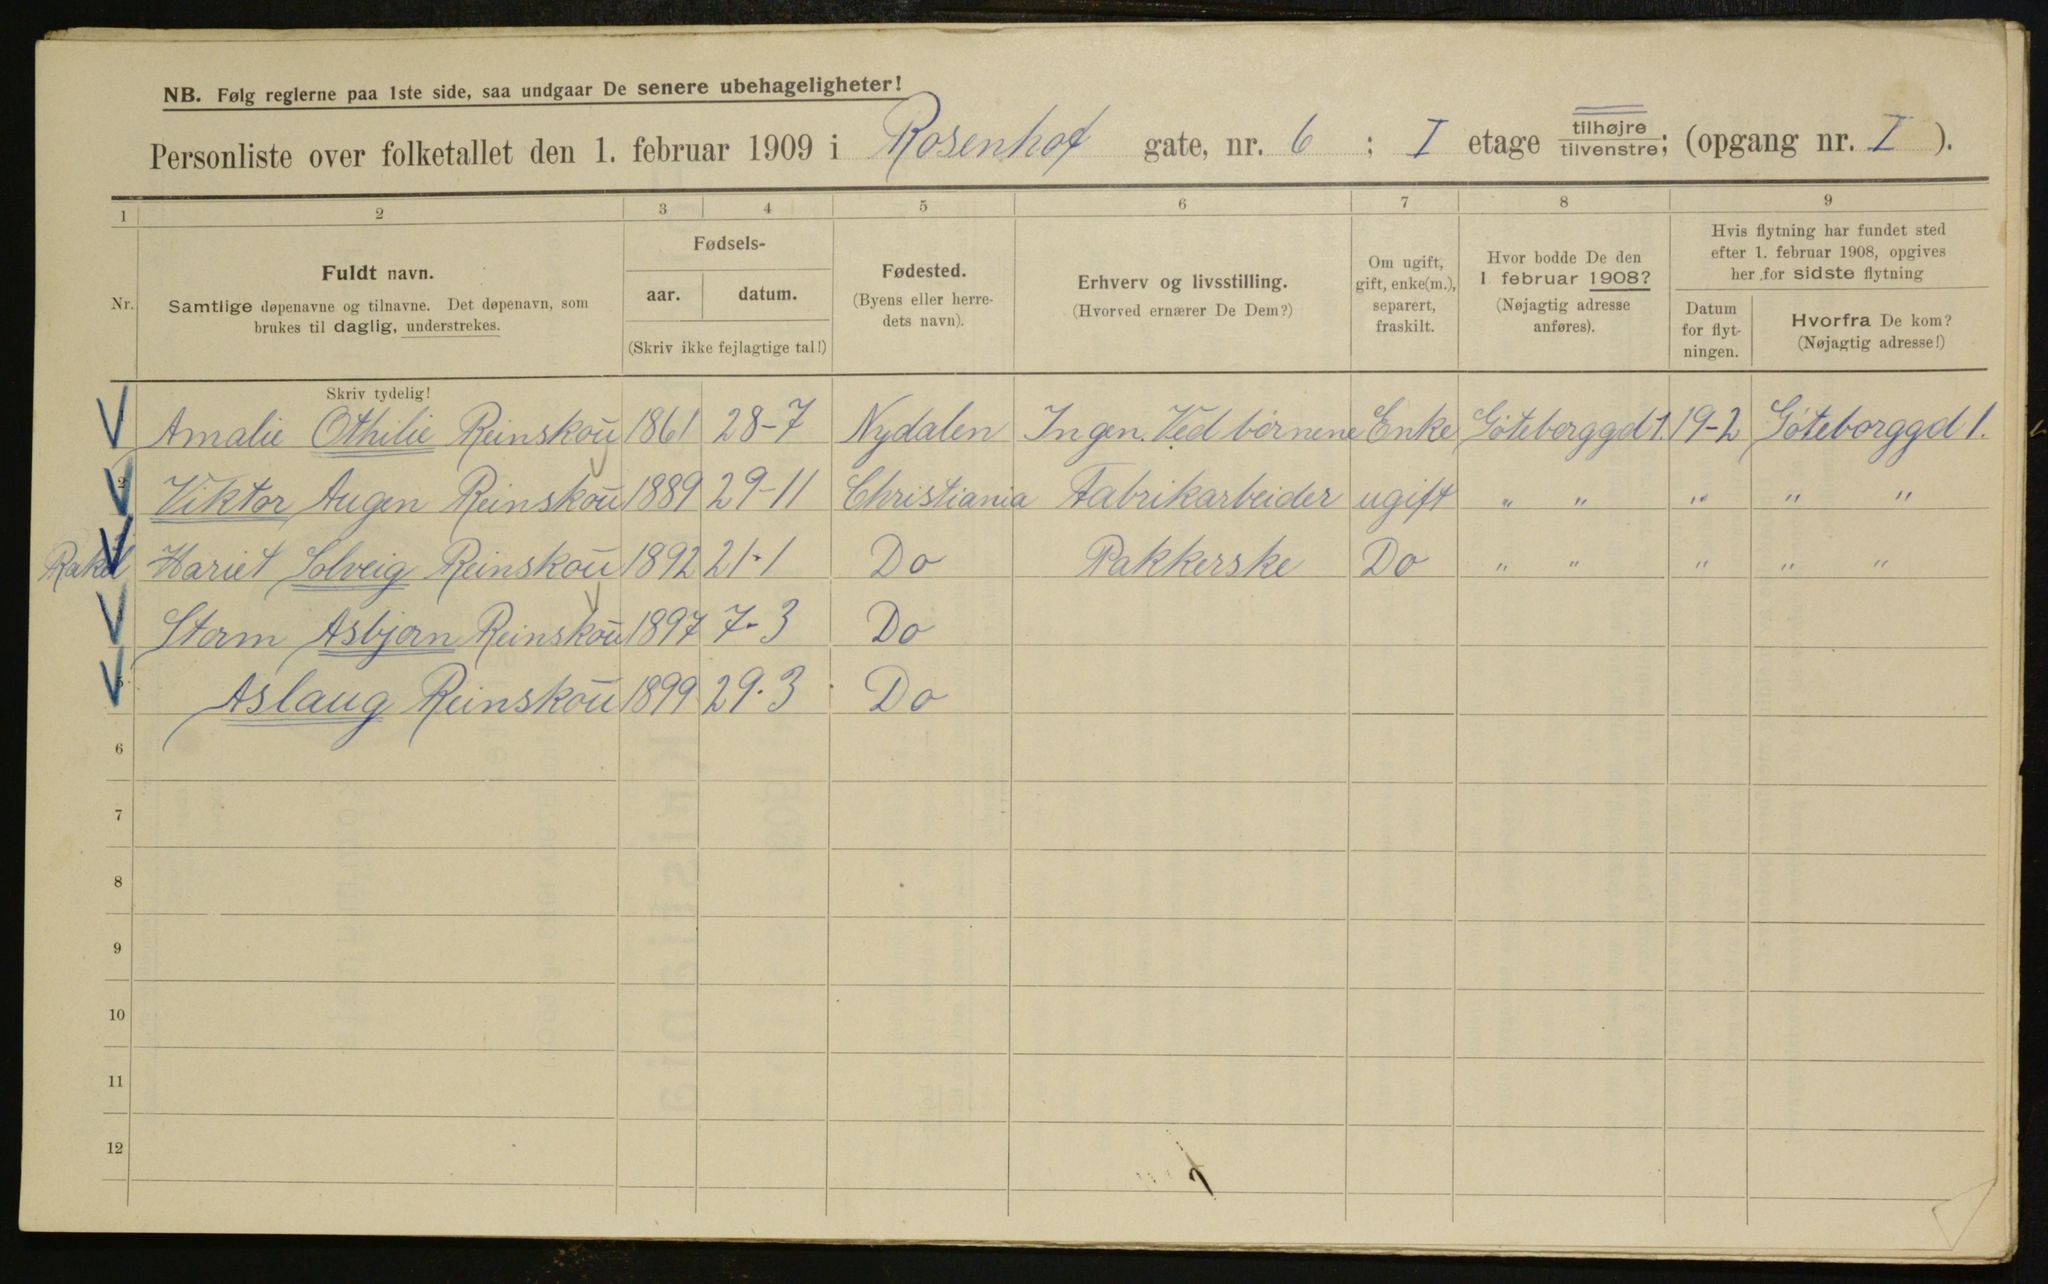 NB. Følg reglerne paa 1ste side, saa undgaar De senere ubehageligheter!
Personliste over folketallet den 1. februar 1909 i Rosenhof gate, nr. 6 ; I etage tilhøjre tilvenstre; (opgang nr. I ).
1 2 3 4 5 6 7 8 9
Nr.
Fuldt navn.
Samtlige døpenavne og tilnavne. Det døpenavn, som
brukes til daglig, understrekes.
Fødsels-
aar. datum.
(Skriv ikke fejlagtige tal!)
Fødested.
(Byens eller herre-
dets navn).
Erhverv og livsstilling.
(Hvorved ernærer De Dem?)
Om ugift,
gift, enke(m.),
separert,
fraskilt.
Hvor bodde De den
1 februar 1908?
(Nøjagtig adresse
anføres).
Hvis flytning har fundet sted
efter 1. februar 1908, opgives
her for sidste flytning
Datum
for flyt-
ningen.
Hvorfra De kom?
(Nøjagtig adresse!)
Skriv tydelig!
Amalie Othilie Reinskou 1861 28-7 Nydalen Ingen. Ved börnene Enke Göteborggd 1. 19-2 Göteborggd 1.
2 Viktor Augen Reinskou 1889 29-11 Christiania Fabrikarbeider ugift " " " " "
Rakel Hariet Solveig Reinskou 1892 21-1 Do Pakkerske Do " " " " "
Storm Asbjorn Reinskou 1897 7-3 Do
5 Aslaug Reinskou 1899 29.3 Do
6
7
8
9
10
11
12